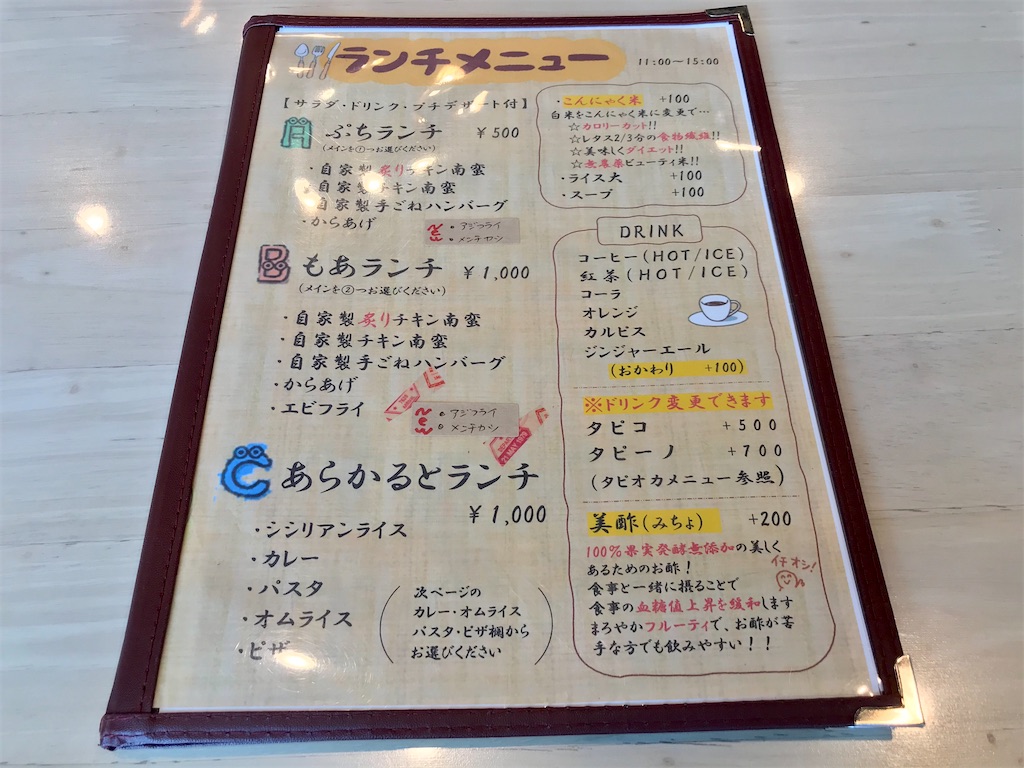 ランチメニュー
11:00〜15:00
【サラダ・ドリンク・プチデザート付】
A ぷちランチ ¥500
(メインを①つお選びください)
・自家製炙りチキン南蛮
・自家製チキン南蛮
自家製手ごねハンバーグ
・からあげ
アジフライ
メンチカツ
B もあランチ ¥1,000
(メインを②つお選びください)
・自家製炙りチキン南蛮
・自家製チキン南蛮
・自家製手ごねハンバーグ
・からあげ
・エビフライ
アジフライ
メンチカツ
C あらかるとランチ
¥1,000
・シシリアンライス
・カレー
・パスタ
・オムライス
・ピザ
次ページの
カレー・オムライス
パスタ・ピザ欄から
お選びください
・こんにゃく米 +100
白米をこんにゃく米に変更で…
☆カロリーカット!!
☆レタス2/3分の食物繊維!!
☆美味しくダイエット!!
☆無農薬ビューティ米!!
・ライス大 +100
・スープ +100
DRINK
コーヒー(HOT/ICE)
紅茶(HOT/ICE)
コーラ
オレンジ
カルピス
ジンジャーエール
(おかわり +100)
※ドリンク変更できます
タピコ +500
タピーノ +700
(タピオカメニュー参照)
美酢(みちょ) +200
100%果実発酵無添加の美しく
あるためのお酢!
イチオシ!
食事と一緒に摂ることで
食事の血糖値上昇を緩和します
まろやかフルーティで、お酢が苦
手な方でも飲みやすい!!